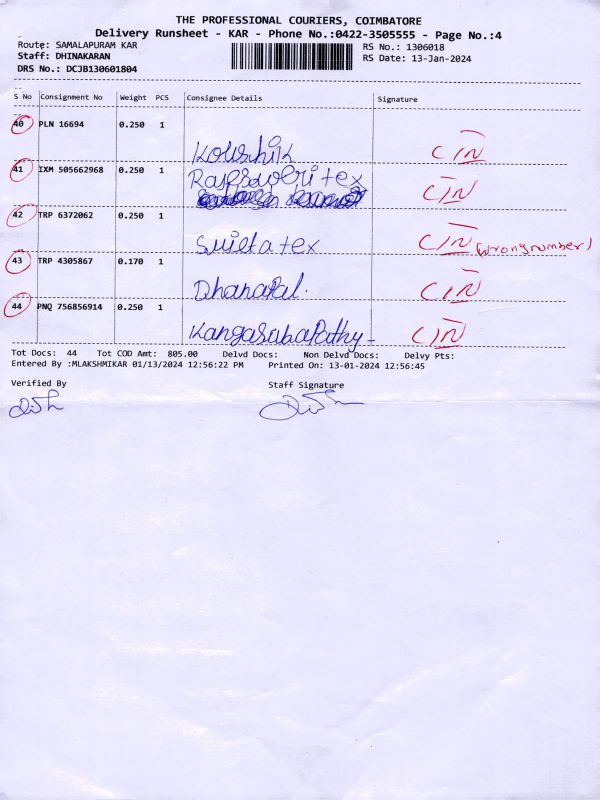 THE PROFESSIONAL COURIERS, COIMBATORE
Delivery Runsheet - KAR - Phone No.:0422-3505555 - Page No.:4
Route: SAMALAPURAM KAR RS No.: 1306018
Staff: DHINAKARAN RS Date: 13-Jan-2024
DRS No.: DCJB130601804
S No Consignment No Weight PCS Consignee Details Signature
40 PLN 16694 0.250 1
Koushik CIN
41 IXM 505662968 0.250 1
Rajeswari tex CIN
42 TRP 6372062 0.250 1
tex CIN (wrong number)
43 TRP 4305867 0.170 1
Dhanapal. CIN
44 PNQ 756856914 0.250 1
Kangasabapathy - CIN
Tot Docs: 44 Tot COD Amt: 805.00 Delvd Docs: Non Delvd Docs: Delvy Pts:
Entered By :MLAKSHMIKAR 01/13/2024 12:56:22 PM Printed On: 13-01-2024 12:56:45
Verified By Staff Signature